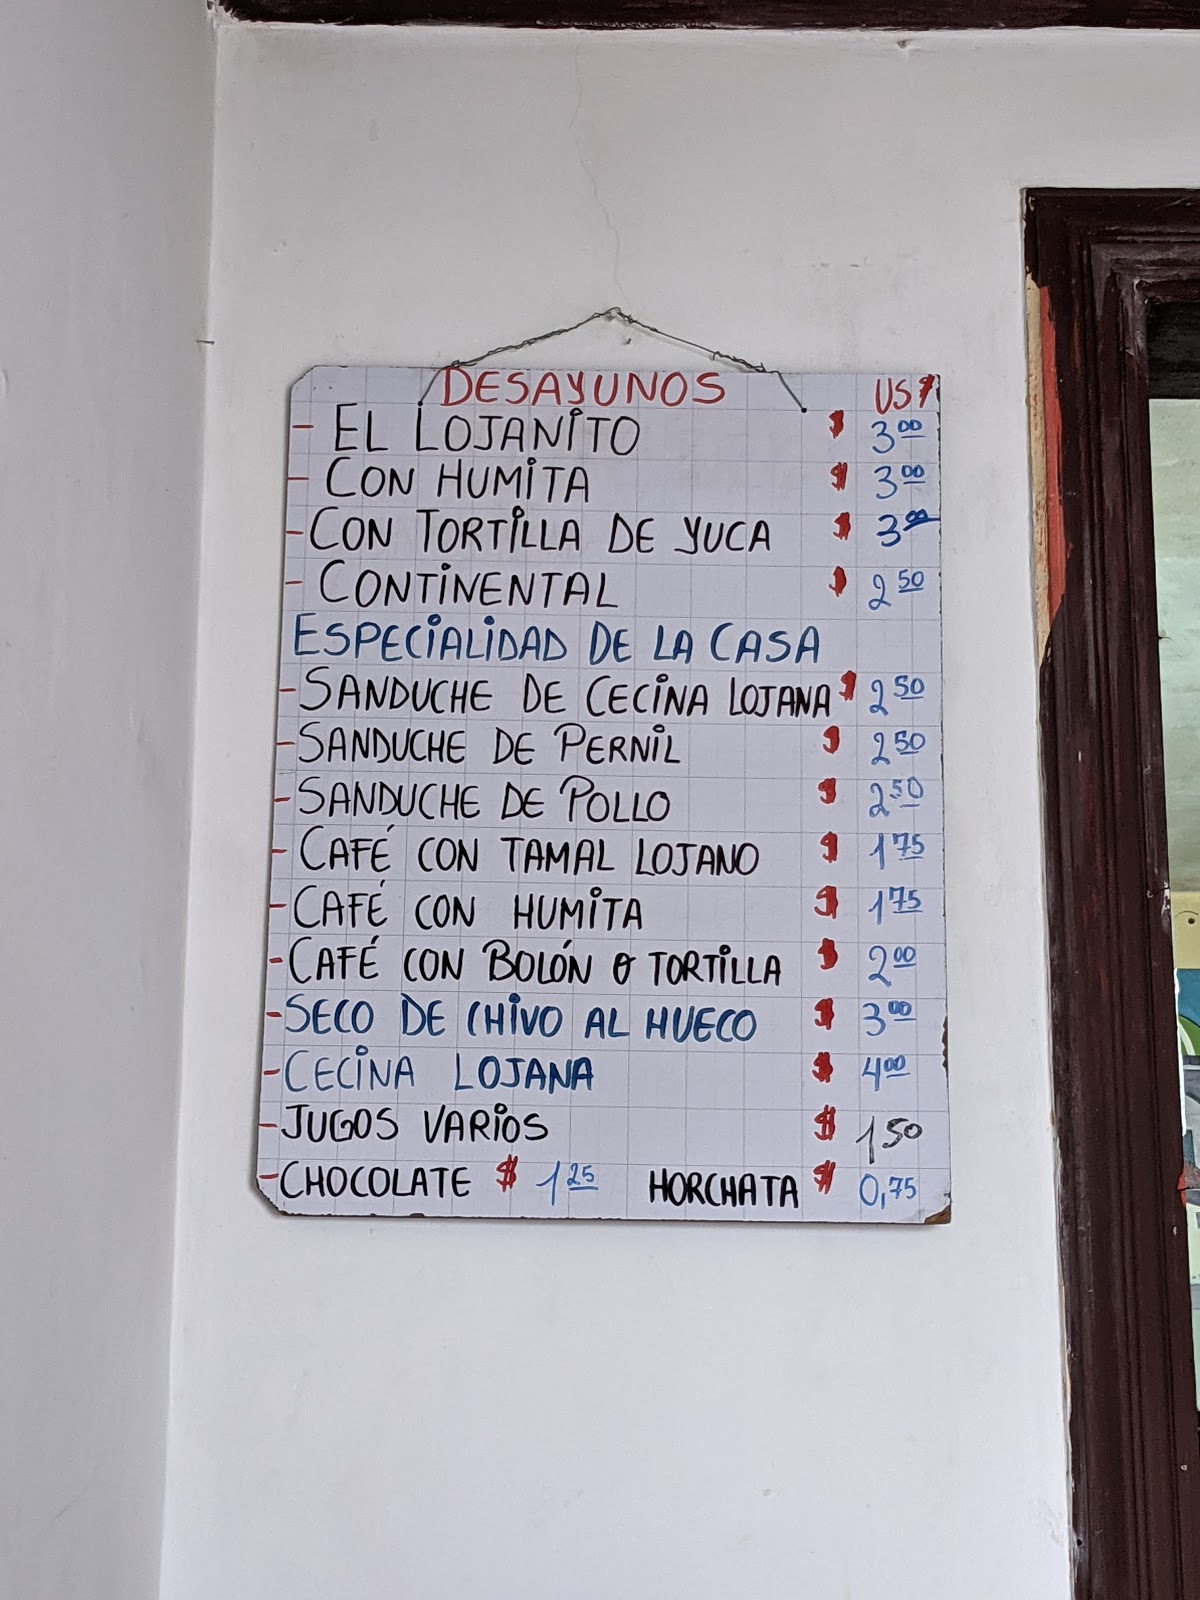 DESAYUNOS US$
- EL LOJANITO $ 3.00
- CON HUMITA $ 3.00
- CON TORTILLA DE YUCA $ 3.00
- CONTINENTAL $ 2.50
ESPECIALIDAD DE LA CASA
- SANDUCHE DE CECINA LOJANA $ 2.50
- SANDUCHE DE PERNIL $ 2.50
- SANDUCHE DE POLLO $ 2.50
- CAFÉ CON TAMAL LOJANO $ 1.75
- CAFÉ CON HUMITA $ 1.75
- CAFÉ CON BOLÓN O TORTILLA $ 2.00
- SECO DE CHIVO AL HUECO $ 3.00
- CECINA LOJANA $ 4.00
- JUGOS VARIOS $ 1,50
- CHOCOLATE $ 1.25 HORCHATA $ 0,75